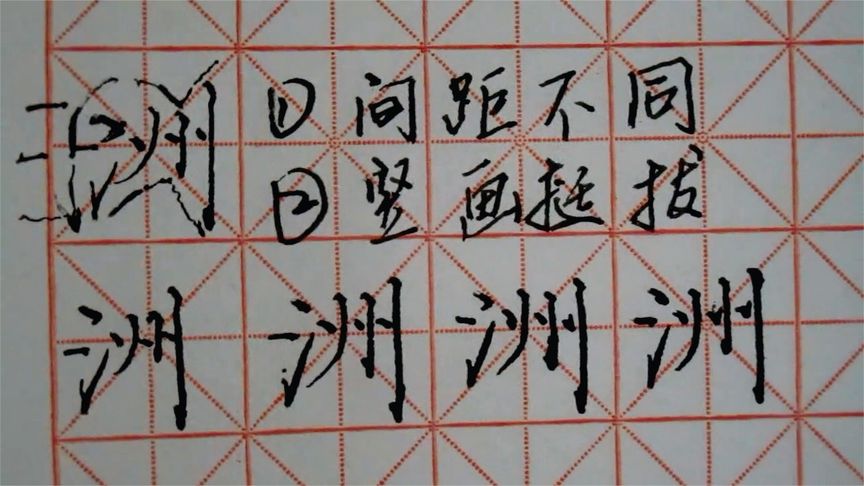 洲 ① 间距不同
② 竖画挺拔
洲 洲 洲 洲